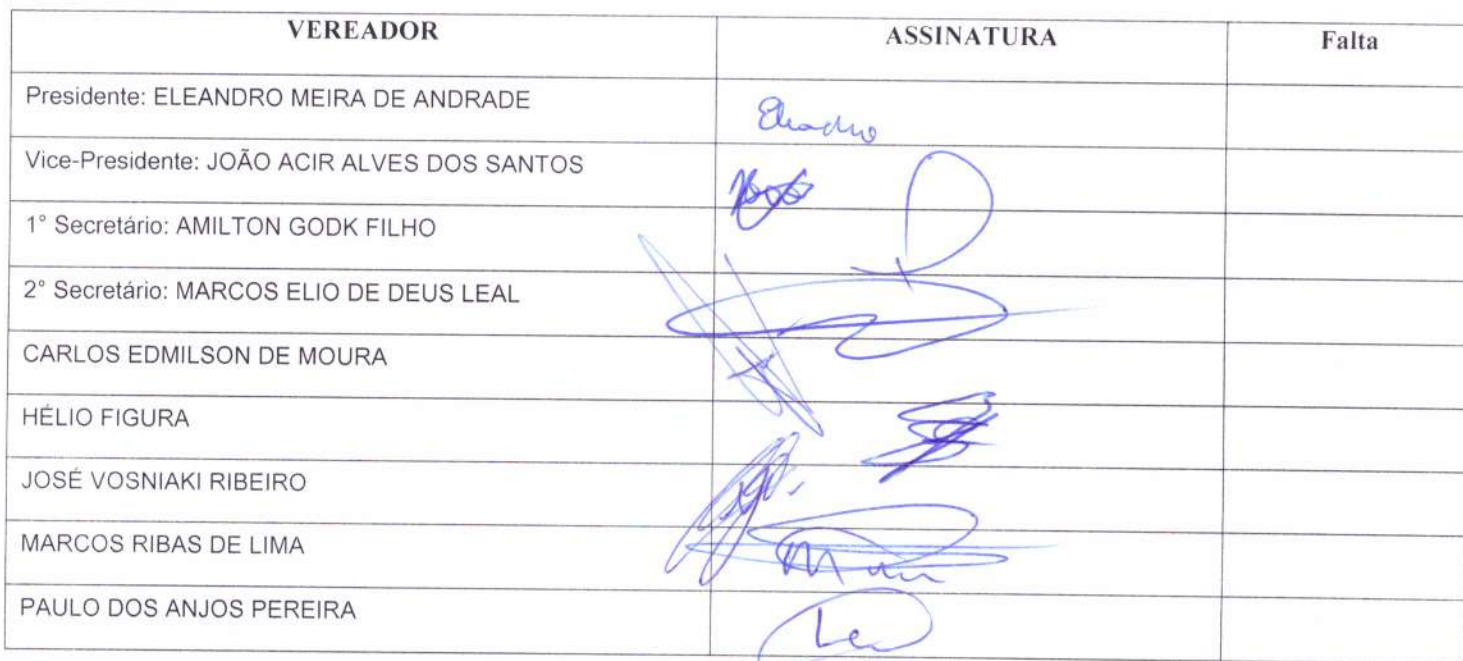 VEREADOR ASSINATURA Falta
Presidente: ELEANDRO MEIRA DE ANDRADE Eleandro
Vice-Presidente: JOÃO ACIR ALVES DOS SANTOS
1° Secretário: AMILTON GODK FILHO
2° Secretário: MARCOS ELIO DE DEUS LEAL
CARLOS EDMILSON DE MOURA
HÉLIO FIGURA
JOSÉ VOSNIAKI RIBEIRO
MARCOS RIBAS DE LIMA
PAULO DOS ANJOS PEREIRA